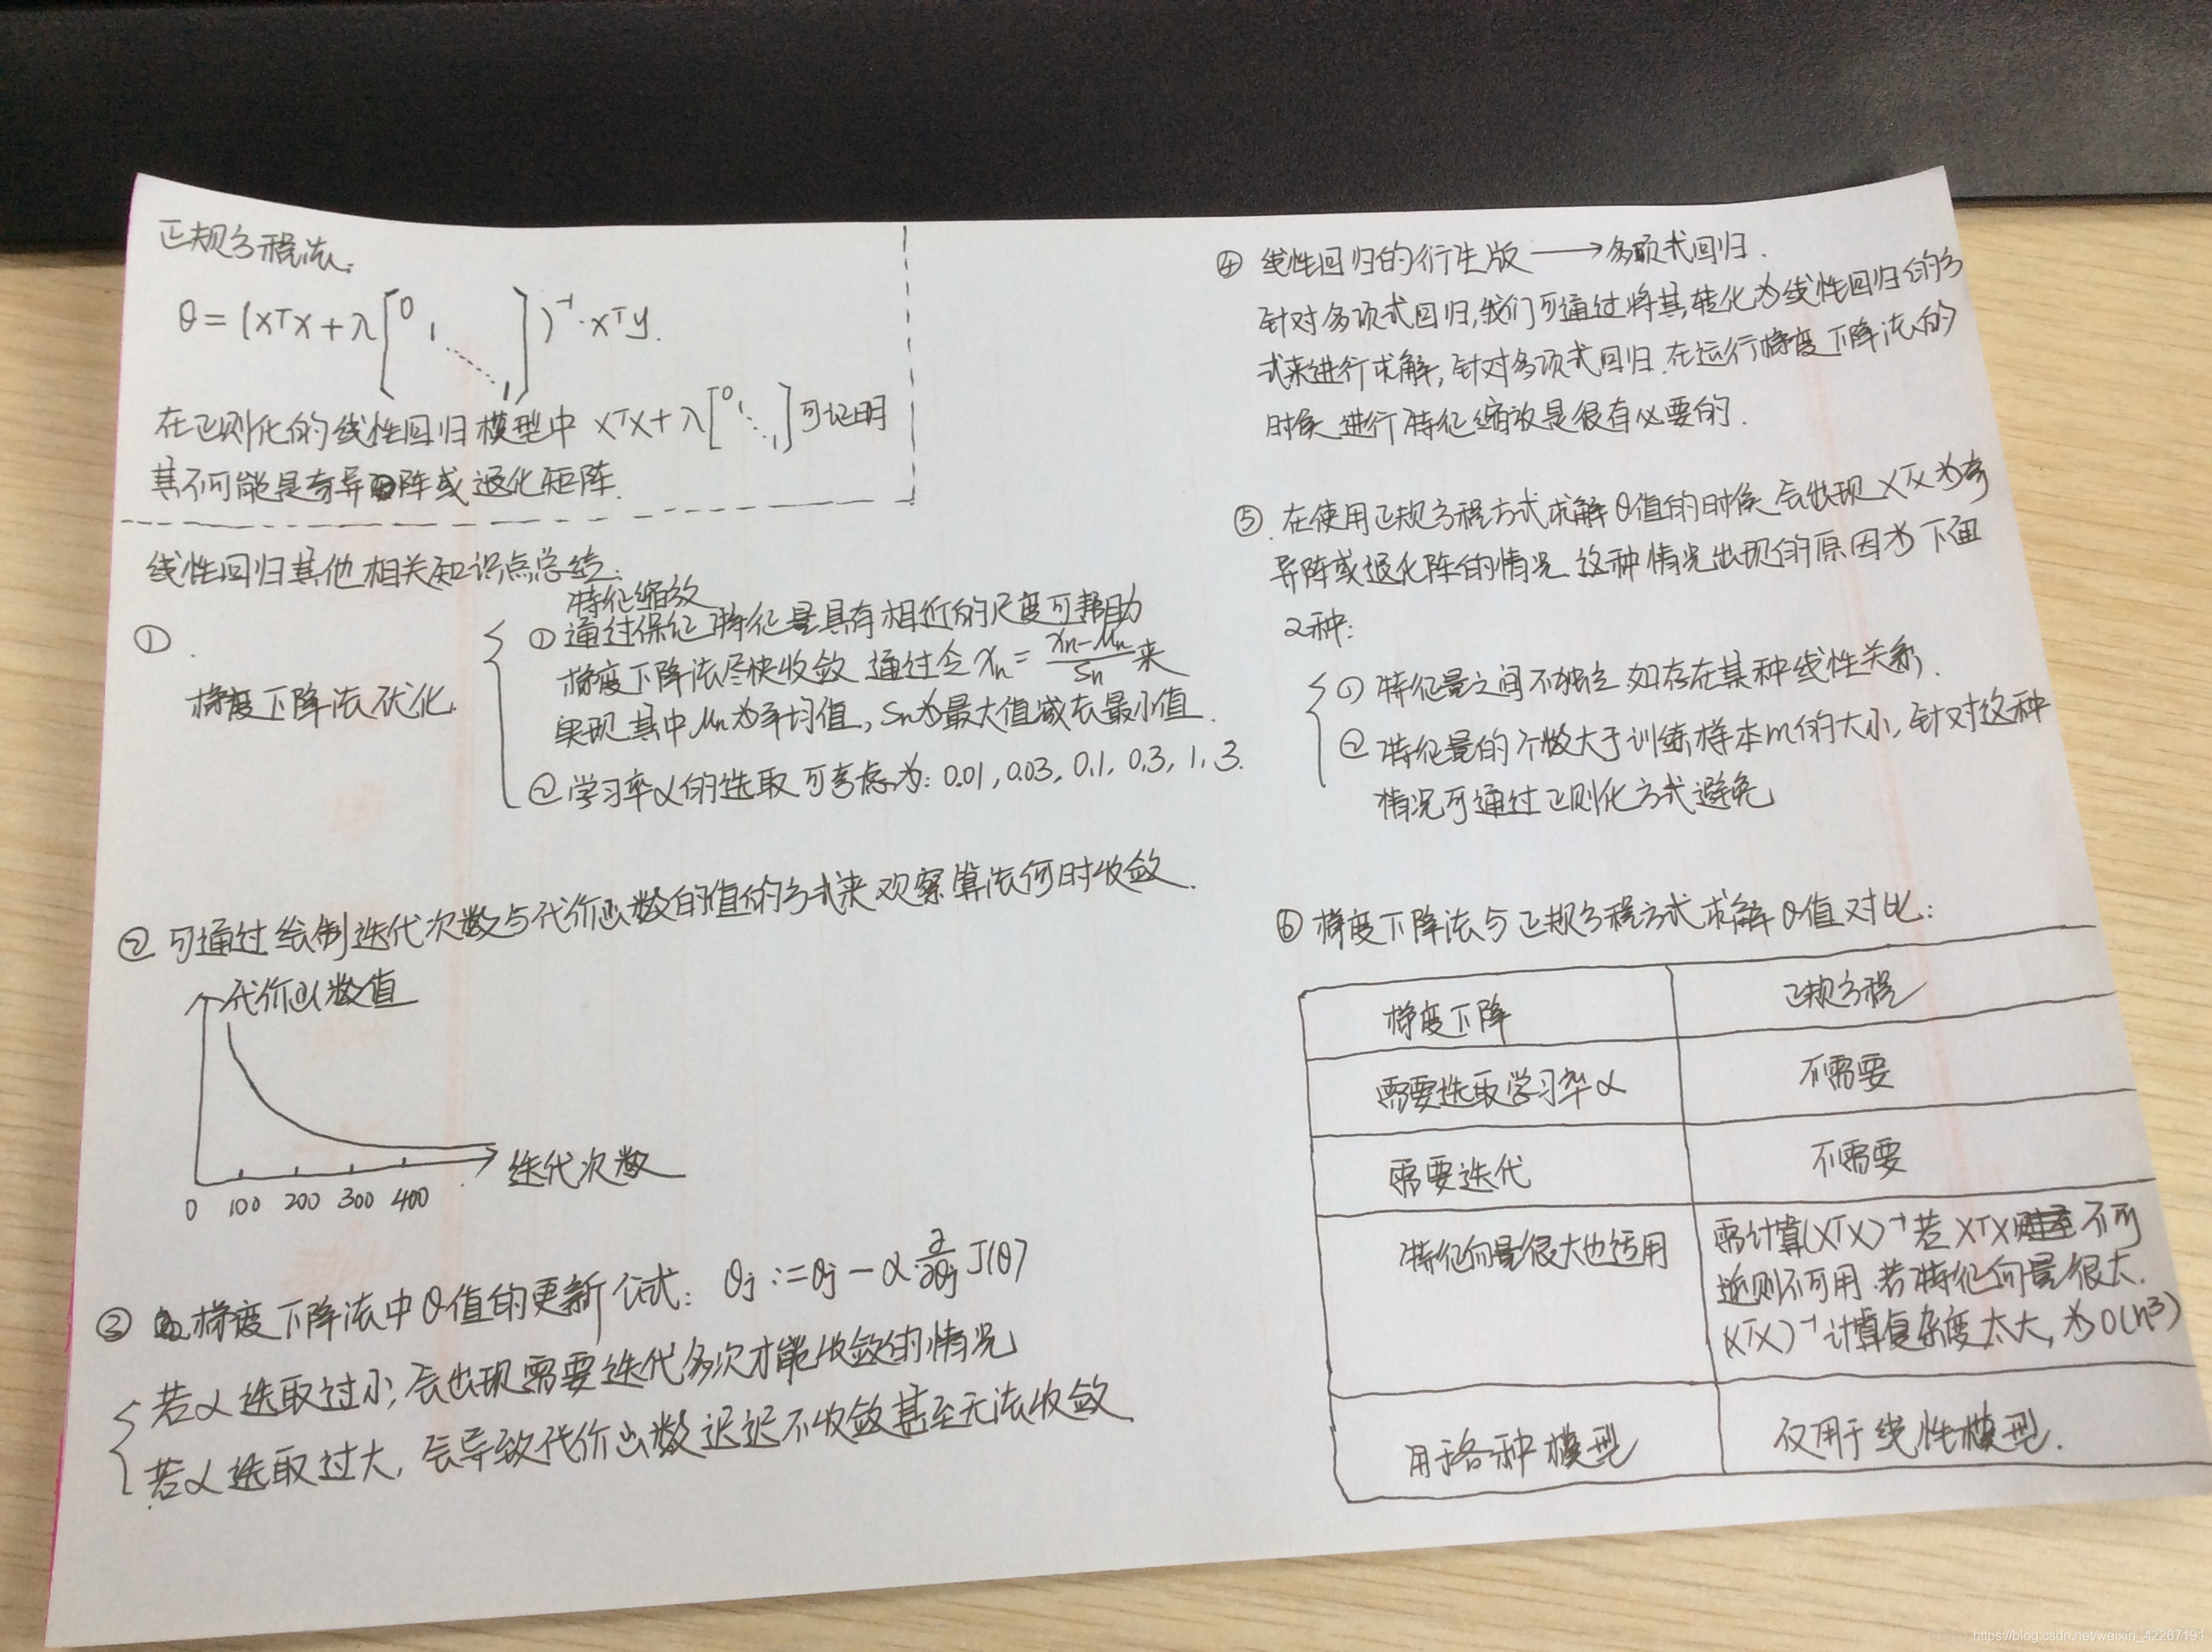 正规方程法:
θ = (xᵀx + λ[0 1 ⋱ 1])⁻¹·xᵀy.
在正则化的线性回归模型中 xᵀx + λ[0 1 ⋱ 1] 可证明
其不可能是奇异阵或退化矩阵.
线性回归其他相关知识点总结:
①.
梯度下降法优化
特征缩放
① 通过保证特征量具有相近的尺度可帮助
梯度下降法尽快收敛 通过令 xn = (xn-μn)/Sn 来
实现 其中μn为平均值, Sn为最大值减去最小值.
② 学习率α的选取可考虑为: 0.01, 0.03, 0.1, 0.3, 1, 3.
② 可通过绘制迭代次数与代价函数的值的方式来观察算法何时收敛.
代价函数值
迭代次数
0 100 200 300 400
③ 梯度下降法中θ值的更新公式: θj := θj - α ∂/∂θj J(θ)
若α选取过小, 会出现需要迭代多次才能收敛的情况
若α选取过大, 会导致代价函数迟迟不收敛甚至无法收敛
④ 线性回归的衍生版 → 多项式回归.
针对多项式回归, 我们可通过将其转化为线性回归的方
式来进行求解, 针对多项式回归. 在运行梯度下降法的
时候 进行特征缩放是很有必要的.
⑤. 在使用正规方程方式求解θ值的时候 会出现 xᵀx 为奇
异阵或退化阵的情况. 这种情况出现的原因为下面
2种:
① 特征量之间不独立 如存在某种线性关系.
② 特征量的个数大于训练样本m的大小, 针对这种
情况可通过正则化方式避免
⑥ 梯度下降法与正规方程方式求解θ值对比:
梯度下降 正规方程
需要选取学习率α 不需要
需要迭代 不需要
特征向量很大也适用 需计算(xᵀx)⁻¹若xᵀx不可
逆则不可用. 若特征向量很大.
(xᵀx)⁻¹计算复杂度太大, 为O(n³)
用于各种模型 仅用于线性模型.
https://blog.csdn.net/weixin_42267191